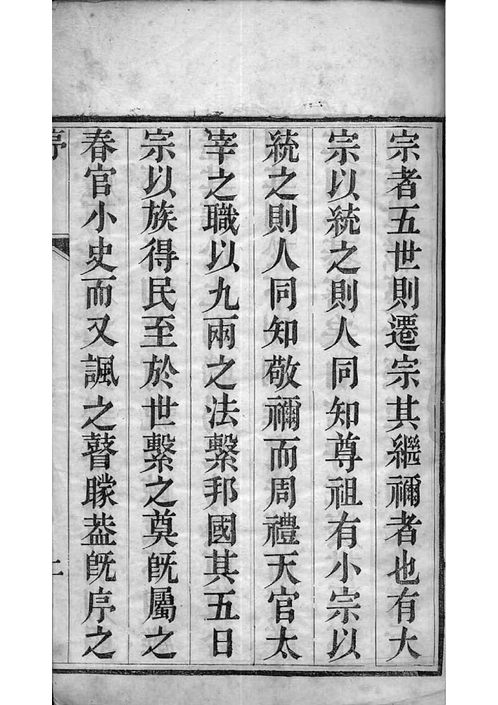 宗者五世則遷宗其繼禰者也有大
宗以統之則人同知尊祖有小宗以
統之則人同知敬禰而周禮天官太
宰之職以九兩之法繫邦國其五曰
宗以族得民至於世繫之奠旣屬之
春官小史而又諷之瞽矇葢旣序之
序